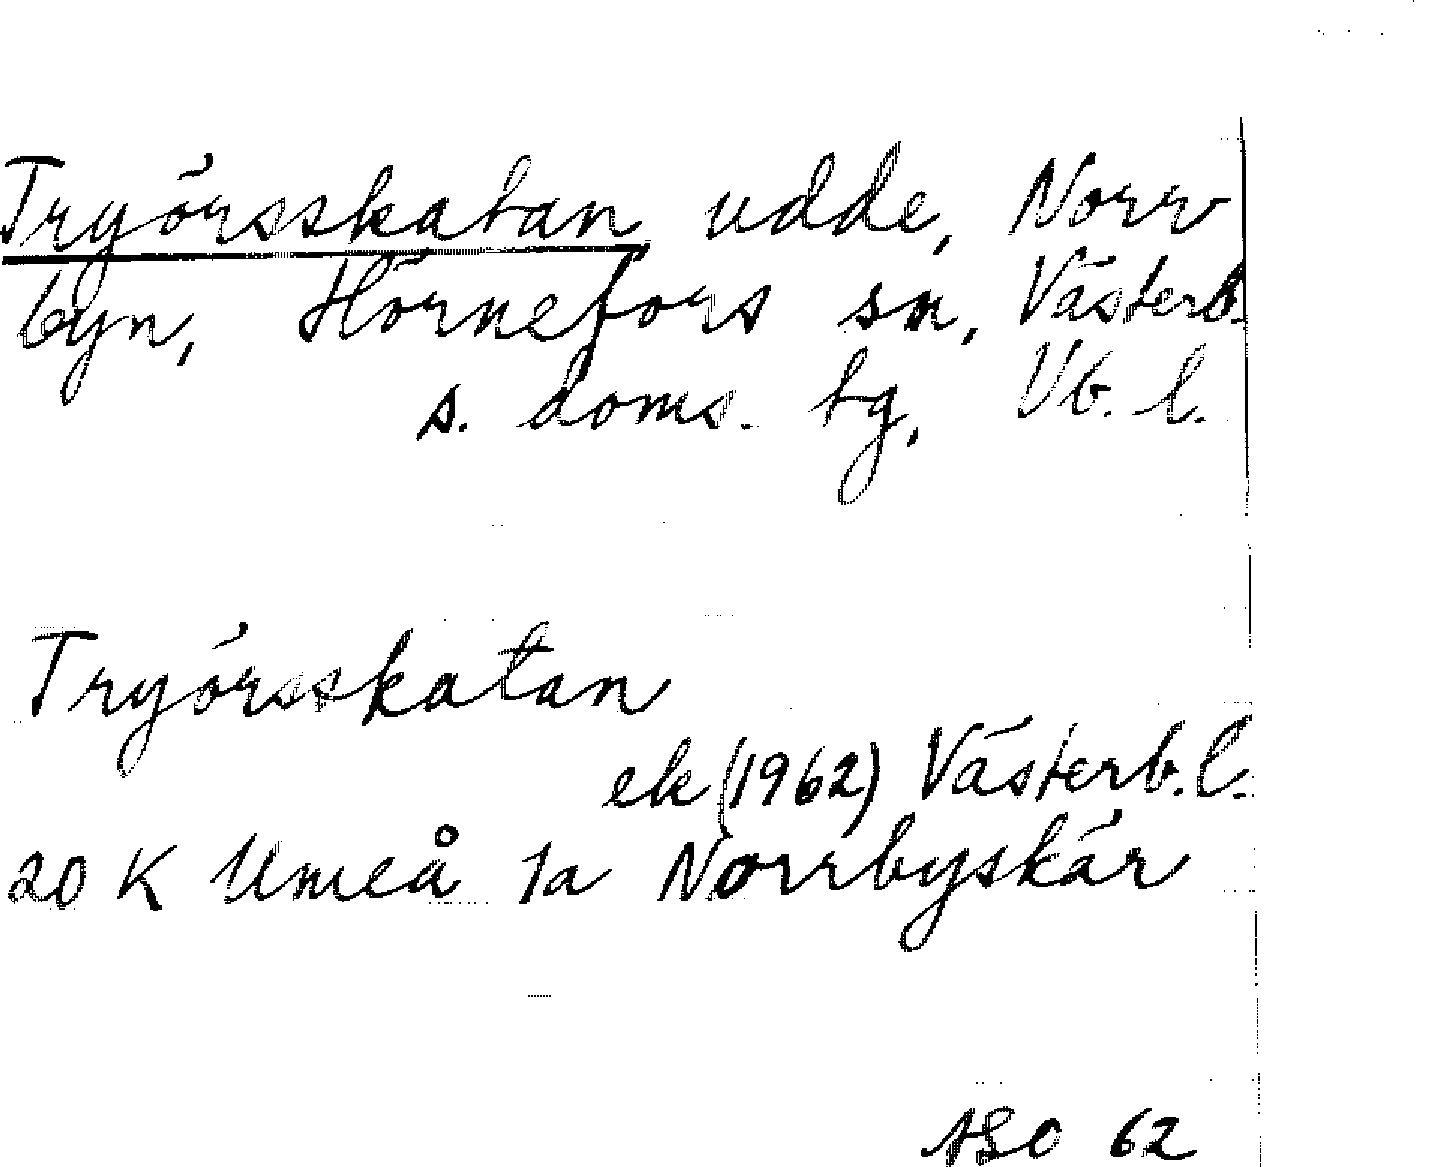 Tryörsskatan udde, Norr
byn, Hörnefors sn, Västerb.
s. doms. tg, Vb. l.
Tryörsskatan
ek (1962) Västerb. l.
20 K Umeå 1a Norrbyskär
ASO 62